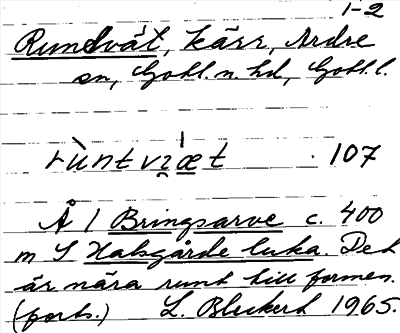 1-2
Rundvät, kärr, Ardre
sn, Gotl. n. hd, Gotl. l.
rùntvı̨æt . 107
Å / Bringsarve c. 400
m S Halsgårde luka. Det
är nära runt till formen.
(forts.) L. Bleckert 1965.